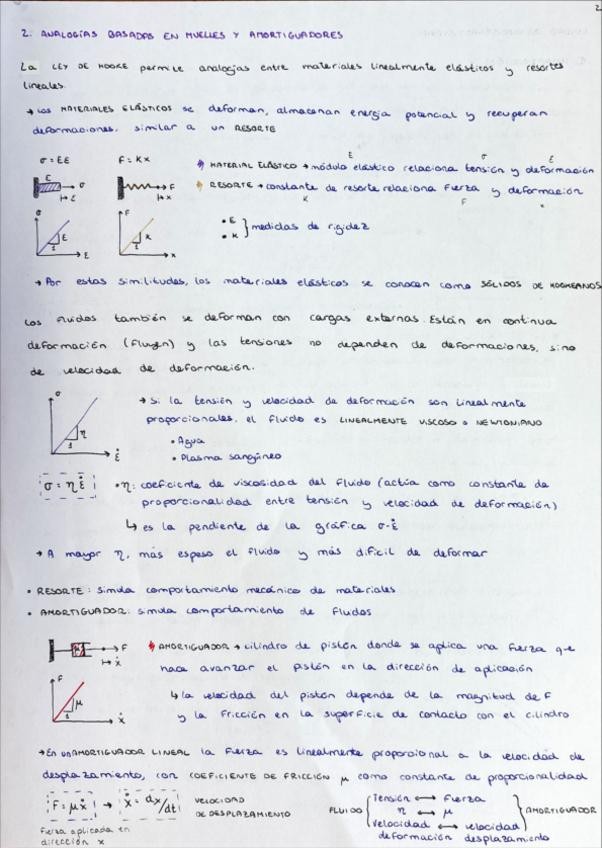 2
2. ANALOGÍAS BASADAS EN MUELLES Y AMORTIGUADORES
La LEY DE HOOKE permite analogías entre materiales linealmente elásticos y resortes
lineales.
→ Los MATERIALES ELÁSTICOS se deforman, almacenan energía potencial y recuperan
deformaciones. similar a un RESORTE
σ = Eε F = Kx
E σ ε
ε F x
MATERIAL ELÁSTICO → módulo elástico relaciona tensión y deformación
E σ ε
RESORTE → constante de resorte relaciona fuerza y deformación
K F x
σ E 1 ε
F K 1 x
• E
• K } medidas de rigidez
→ Por estas similitudes, los materiales elásticos se conocen como SÓLIDOS DE HOOKEANOS
Los fluidos también se deforman con cargas externas. Están en continua
deformación (fluyen) y las tensiones no dependen de deformaciones, sino
de velocidad de deformación.
σ η 1 ε̇
→ Si la tensión y velocidad de deformación son linealmente
proporcionales, el fluido es LINEALMENTE VISCOSO o NEWTONIANO
• Agua
• Plasma sanguíneo
σ = η ε̇
• η: coeficiente de viscosidad del fluido (actúa como constante de
proporcionalidad entre tensión y velocidad de deformación)
↳ es la pendiente de la gráfica σ-ε̇
→ A mayor η, más espeso el fluido y más difícil de deformar
• RESORTE: simula comportamiento mecánico de materiales
• AMORTIGUADOR: simula comportamiento de fluidos
μ F ẋ
AMORTIGUADOR → cilindro de pistón donde se aplica una fuerza que
hace avanzar el pistón en la dirección de aplicación
F μ 1 ẋ
↳ la velocidad del pistón depende de la magnitud de F
y la fricción en la superficie de contacto con el cilindro
→ En un AMORTIGUADOR LINEAL la fuerza es linealmente proporcional a la velocidad de
desplazamiento, con COEFICIENTE DE FRICCIÓN μ como constante de proporcionalidad
F = μẋ → ẋ = dx/dt
VELOCIDAD
DE DESPLAZAMIENTO
Fuerza aplicada en
dirección x
FLUIDO { Tensión ↔ Fuerza } AMORTIGUADOR
η ↔ μ
velocidad ↔ velocidad
deformación desplazamiento